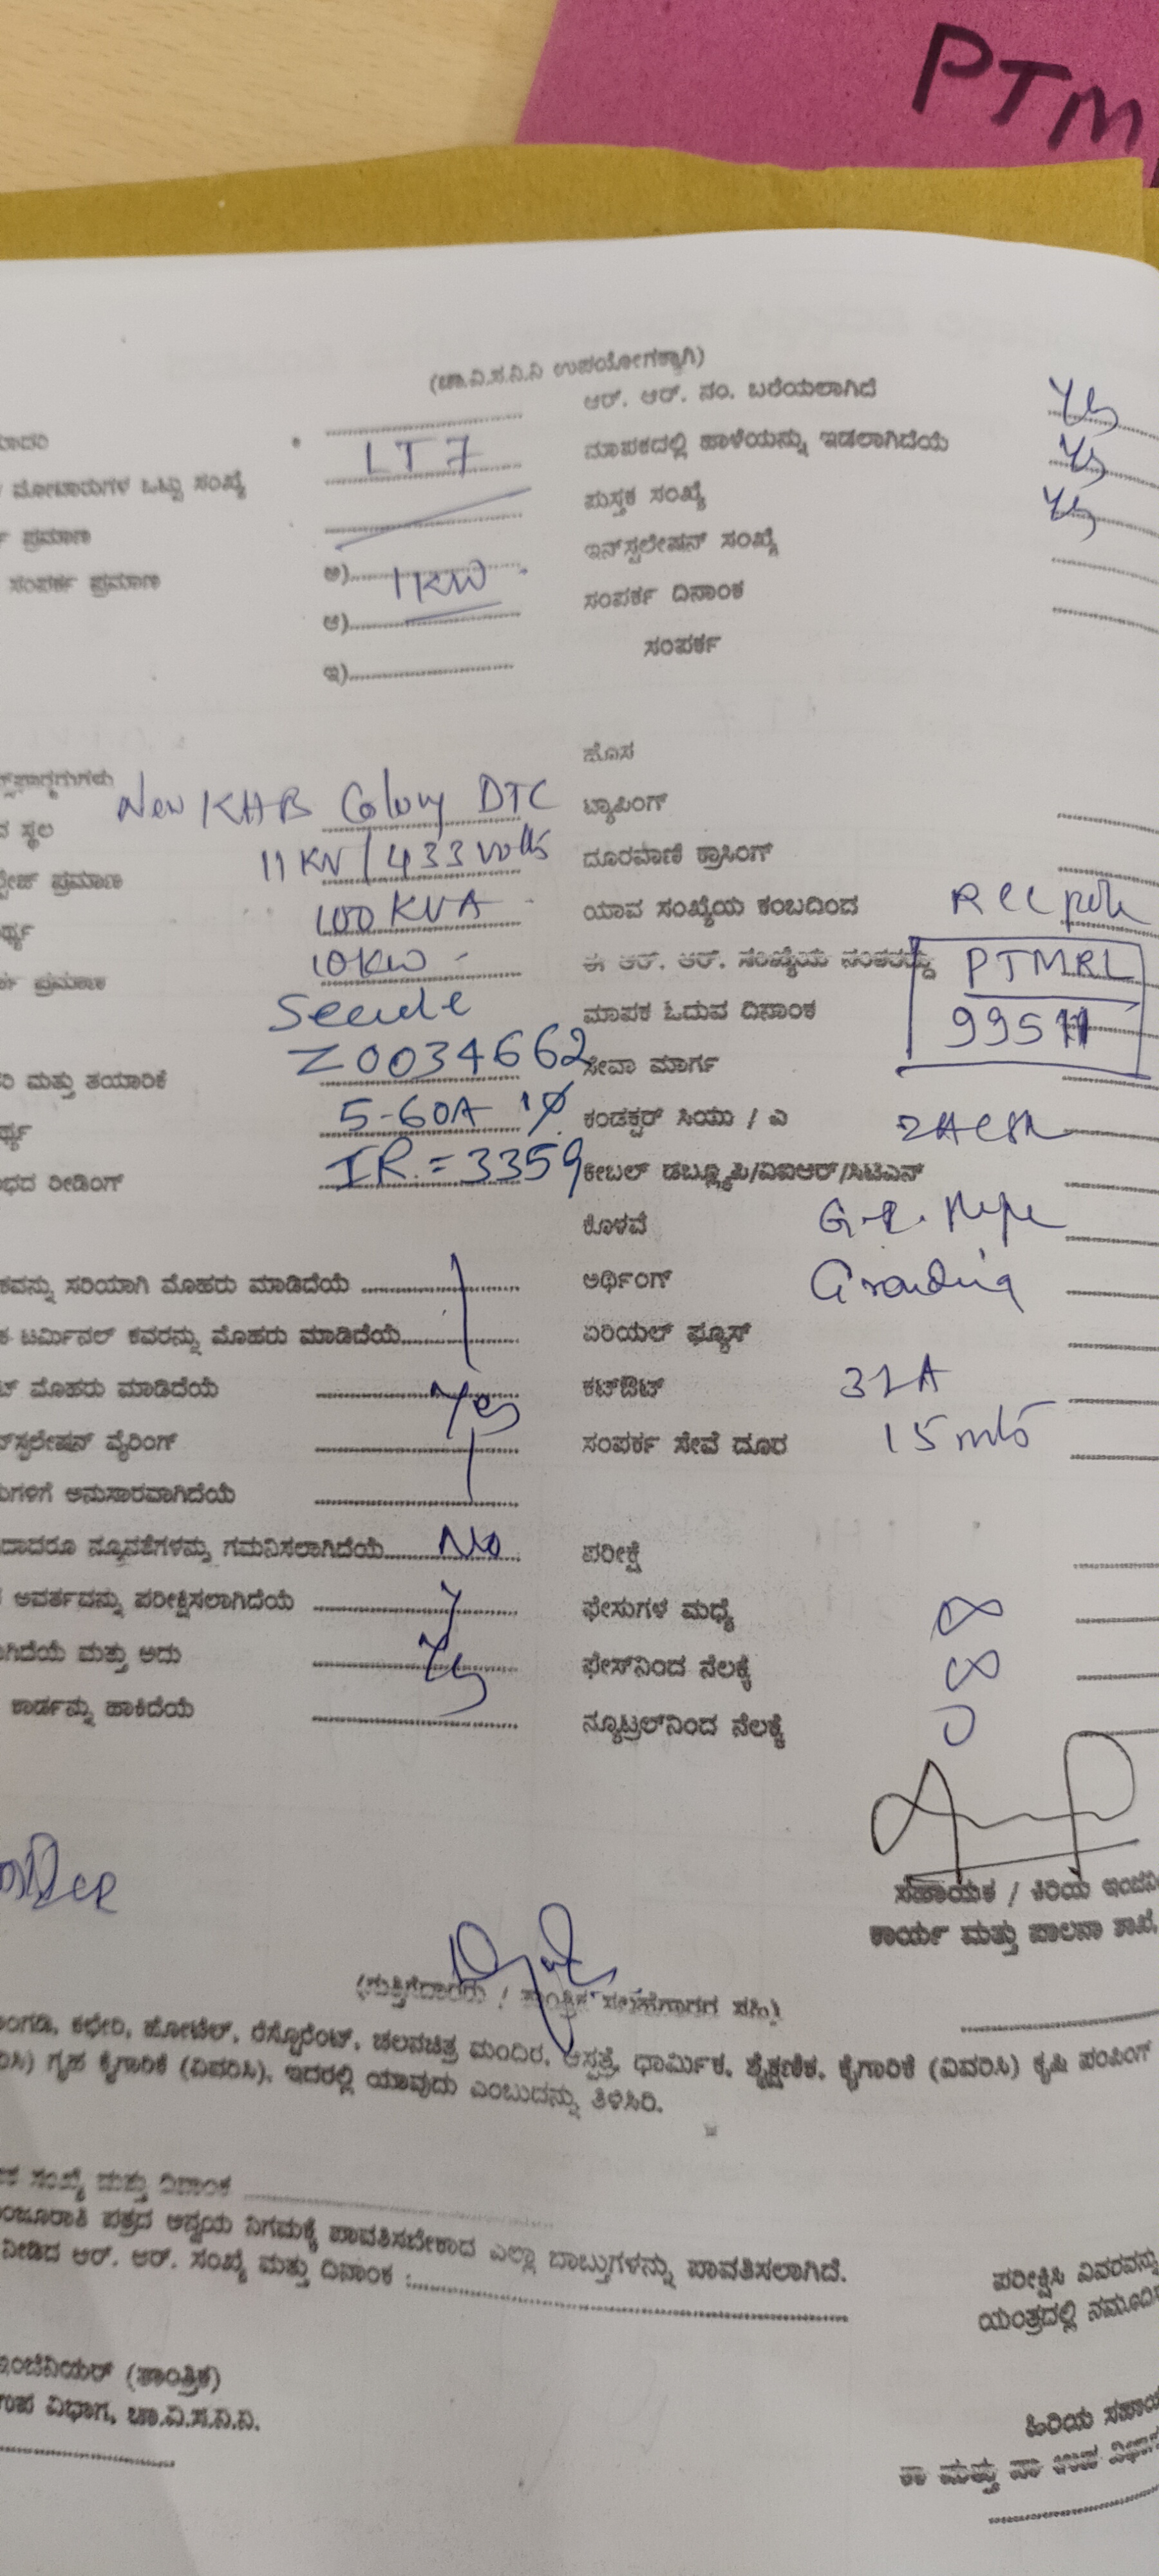 PTM
(ಚಾ.ವಿ.ಸ.ನಿ.ನಿ ಉಪಯೋಗಕ್ಕಾಗಿ)
ಆರ್. ಆರ್. ನಂ. ಬರೆಯಲಾಗಿದೆ Yes
LT7 ಮಾಪಕದಲ್ಲಿ ಹಾಳೆಯನ್ನು ಇಡಲಾಗಿದೆಯೆ Yes
ಮೋಟಾರುಗಳ ಒಟ್ಟು ಸಂಖ್ಯೆ ಪುಸ್ತಕ ಸಂಖ್ಯೆ Yes
ಪ್ರಮಾಣ ಇನ್‌ಸ್ಟಲೇಷನ್ ಸಂಖ್ಯೆ
ಸಂಪರ್ಕ ಪ್ರಮಾಣ ಅ) 1KW ಸಂಪರ್ಕ ದಿನಾಂಕ
ಆ) ಸಂಪರ್ಕ
ಇ)
ಹೊಸ
ಸ್ಥಲ New KHB Colony DTC ಟ್ಯಾಪಿಂಗ್
ಪ್ರಮಾಣ 11KV/433 volts ದೂರವಾಣಿ ಕ್ರಾಸಿಂಗ್
100 KVA ಯಾವ ಸಂಖ್ಯೆಯ ಕಂಬದಿಂದ RCC pole
ಪ್ರಮಾಣ 10KW ಈ ಆರ್. ಆರ್. ಸಂಖ್ಯೆಯ ನಂತರದ್ದು PTMRL
Secure ಮಾಪಕ ಓದುವ ದಿನಾಂಕ 99511
ಮತ್ತು ತಯಾರಿಕೆ Z0034662 ಸೇವಾ ಮಾರ್ಗ
5-60A 1Ø ಕಂಡಕ್ಟರ್ ಸಿಯು / ಎ
ರೀಡಿಂಗ್ IR = 3359 ಕೇಬಲ್ ಡಬ್ಲ್ಯೂಪಿ/ವಿಐಆರ್/ಸಿಟಿಎಸ್
ಕೊಳವೆ
ಸರಿಯಾಗಿ ಮೊಹರು ಮಾಡಿದೆಯೆ ಅರ್ಥಿಂಗ್
ಟರ್ಮಿನಲ್ ಕವರನ್ನು ಮೊಹರು ಮಾಡಿದೆಯೆ ಏರಿಯಲ್ ಫ್ಯೂಸ್
ಮೊಹರು ಮಾಡಿದೆಯೆ Yes ಕಟ್‌ಔಟ್ 32A
ವೈರಿಂಗ್ ಸಂಪರ್ಕ ಸೇವೆ ದೂರ 15 mts
ಅನುಸಾರವಾಗಿದೆಯೆ
ನ್ಯೂನತೆಗಳನ್ನು ಗಮನಿಸಲಾಗಿದೆಯೆ No ಪರೀಕ್ಷೆ
ಪರೀಕ್ಷಿಸಲಾಗಿದೆಯೆ ಫೇಸುಗಳ ಮಧ್ಯೆ ∞
ಮತ್ತು ಅದು Yes ಫೇಸ್‌ನಿಂದ ನೆಲಕ್ಕೆ ∞
ಕಾರ್ಡನ್ನು ಹಾಕಿದೆಯೆ ನ್ಯೂಟ್ರಲ್‌ನಿಂದ ನೆಲಕ್ಕೆ 0
ಸಹಾಯಕ / ಕಿರಿಯ
ಕಾರ್ಯ ಮತ್ತು ಪಾಲನಾ ಶಾಖೆ,
(ಗುತ್ತಿಗೆದಾರರು / ತಾಂತ್ರಿಕ ಸಲಹೆಗಾರರ ಸಹಿ)
ಕಛೇರಿ, ಹೋಟೆಲ್, ರೆಸ್ಟೋರೆಂಟ್, ಚಲನಚಿತ್ರ ಮಂದಿರ, ಆಸ್ಪತ್ರೆ, ಧಾರ್ಮಿಕ, ಶೈಕ್ಷಣಿಕ, ಕೈಗಾರಿಕೆ (ವಿವರಿಸಿ) ಕೃಷಿ ಪಂಪಿಂಗ್
ಗೃಹ ಕೈಗಾರಿಕೆ (ವಿವರಿಸಿ), ಇದರಲ್ಲಿ ಯಾವುದು ಎಂಬುದನ್ನು ತಿಳಿಸಿರಿ.
ಸಂಖ್ಯೆ ಮತ್ತು ದಿನಾಂಕ
ಪತ್ರದ ಅನ್ವಯ ನಿಗಮಕ್ಕೆ ಪಾವತಿಸಬೇಕಾದ ಎಲ್ಲಾ ಬಾಬ್ತುಗಳನ್ನು ಪಾವತಿಸಲಾಗಿದೆ.
ನೀಡಿದ ಆರ್. ಆರ್. ಸಂಖ್ಯೆ ಮತ್ತು ದಿನಾಂಕ :
ಪರೀಕ್ಷಿಸಿ ವಿವರವನ್ನು
ಯಂತ್ರದಲ್ಲಿ
(ತಾಂತ್ರಿಕ)
ಉಪ ವಿಭಾಗ, ಚಾ.ವಿ.ಸ.ನಿ.ನಿ.
ಹಿರಿಯ
ಕಾ ಮತ್ತು ಪಾ ಉಪ